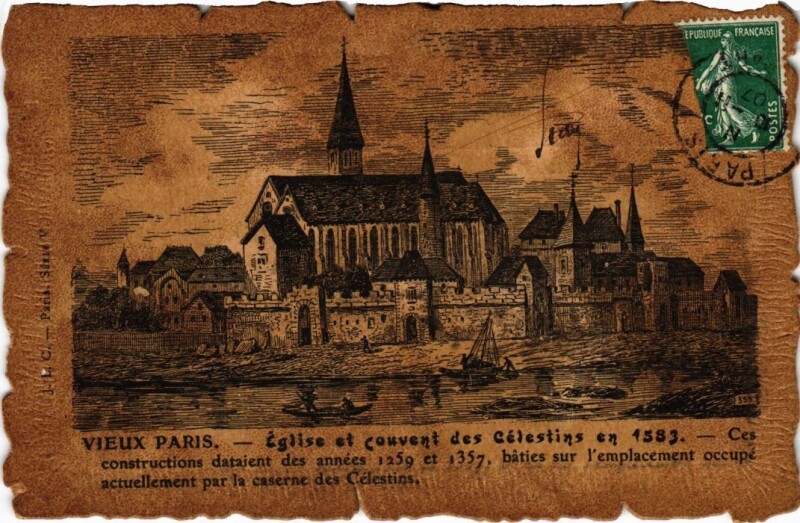 REPUBLIQUE FRANÇAISE
POSTES
PARIS
07
J. L. C. — Paris. Série V
VIEUX PARIS. — Église et couvent des Célestins en 1583. — Ces
constructions dataient des années 1259 et 1357, bâties sur l'emplacement occupé
actuellement par la caserne des Célestins.